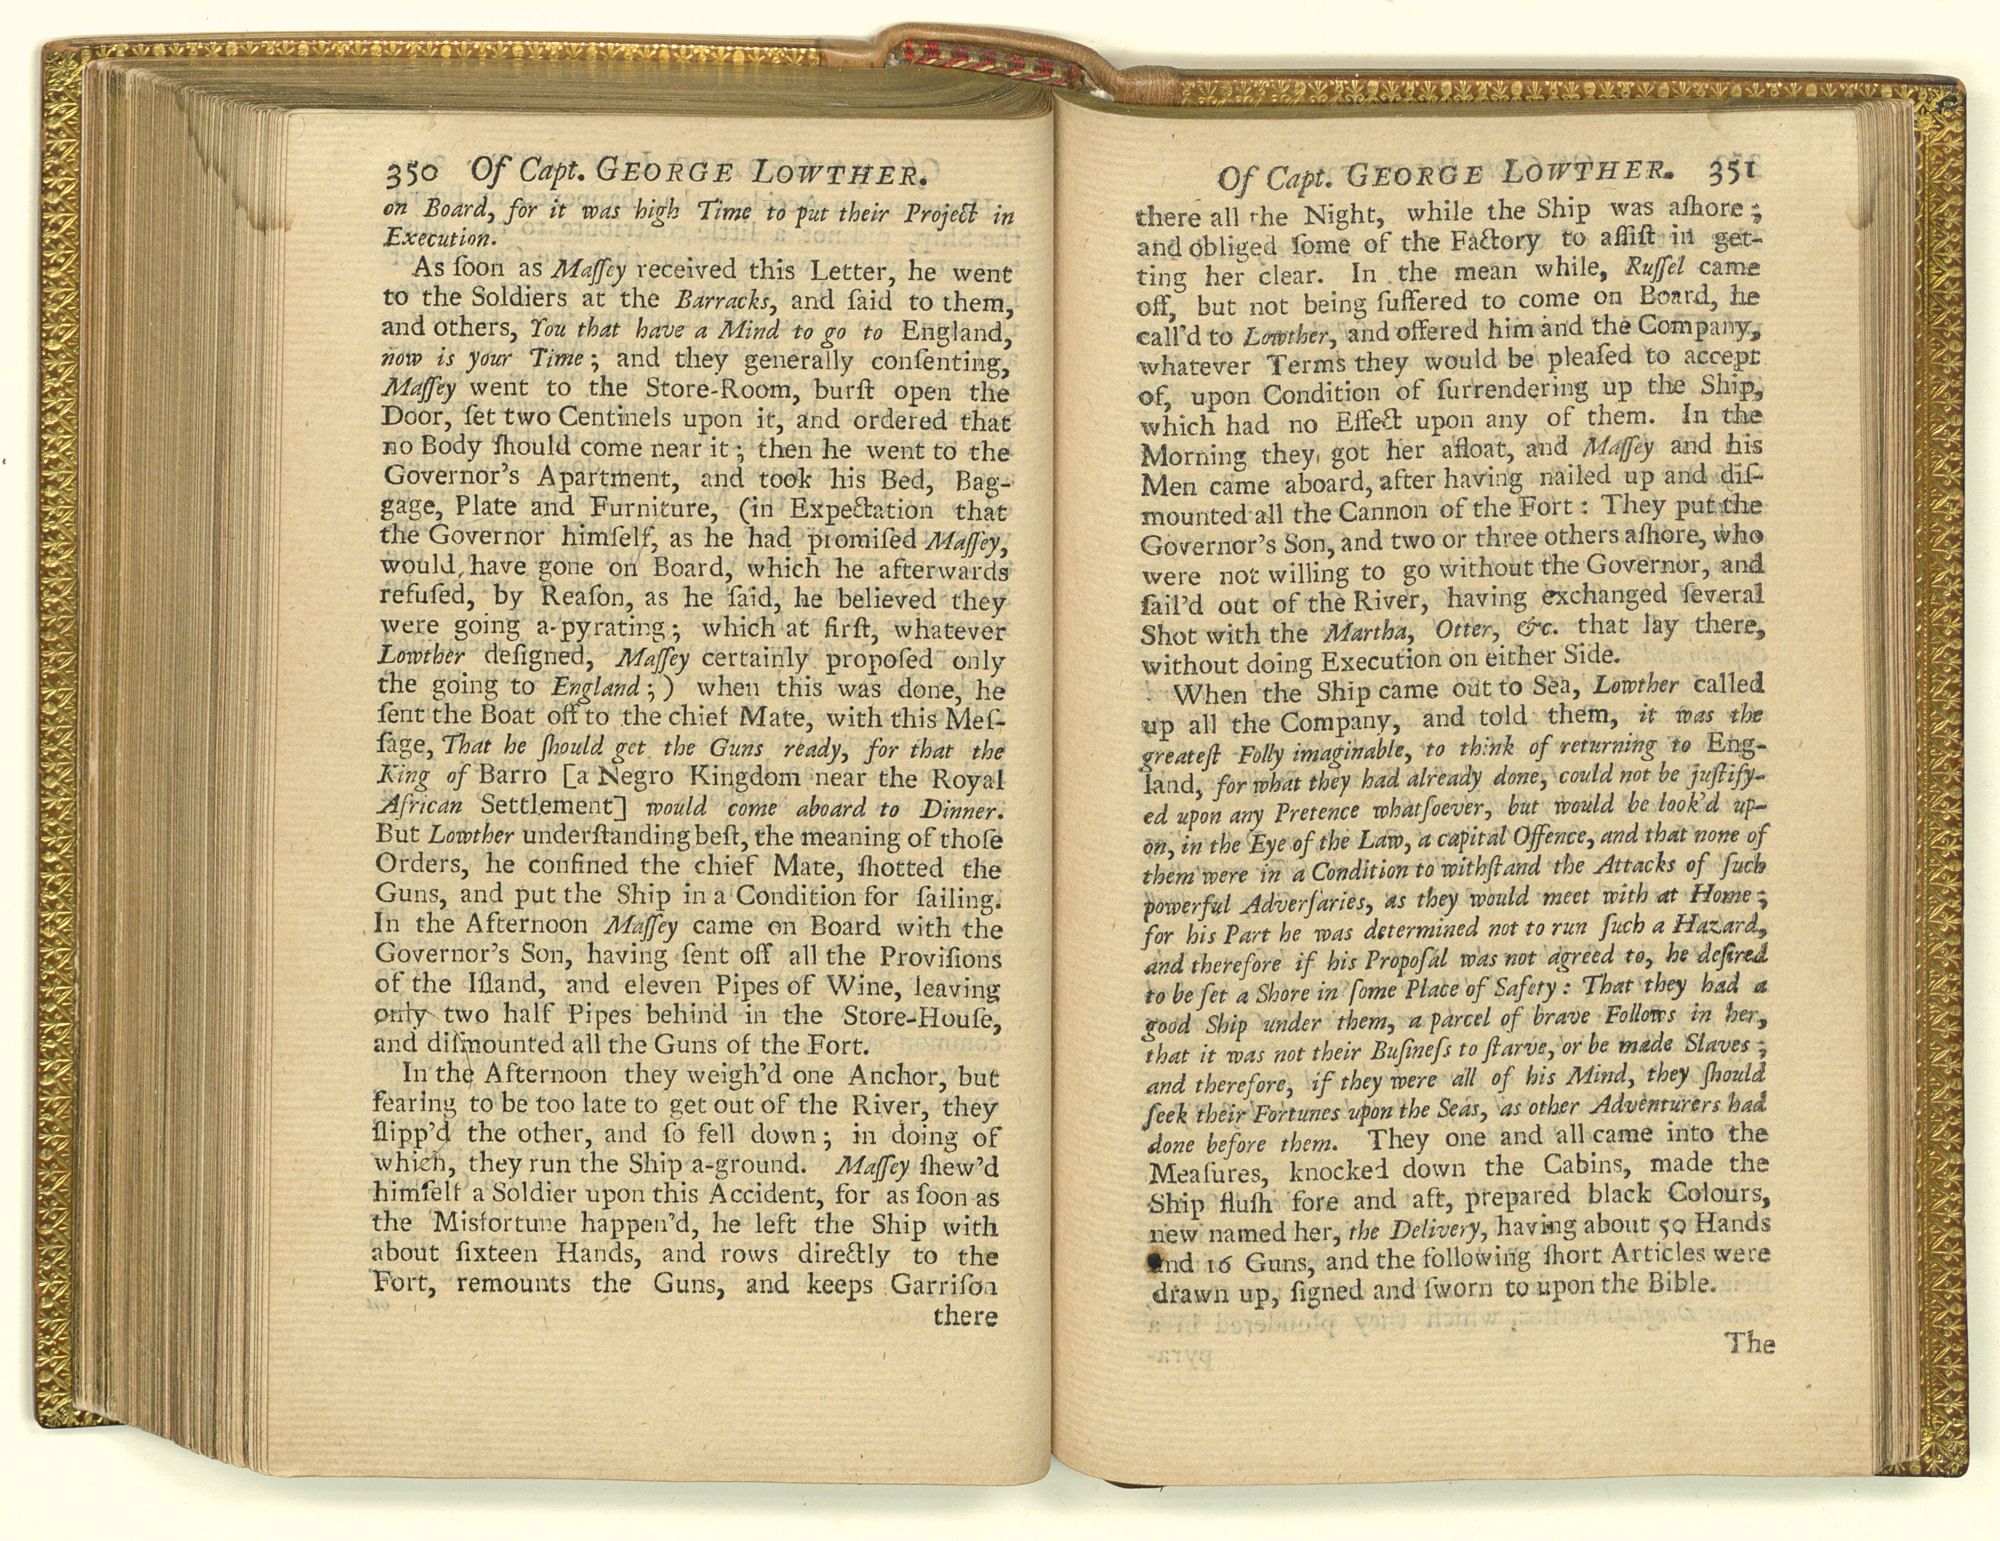 350 Of Capt. GEORGE LOWTHER.
on Board, for it was high Time to put their Project in
Execution.
As ſoon as Maſſey received this Letter, he went
to the Soldiers at the Barracks, and ſaid to them,
and others, You that have a Mind to go to England,
now is your Time; and they generally conſenting,
Maſſey went to the Store-Room, burſt open the
Door, ſet two Centinels upon it, and ordered that
no Body ſhould come near it; then he went to the
Governor's Apartment, and took his Bed, Bag-
gage, Plate and Furniture, (in Expectation that
the Governor himſelf, as he had promiſed Maſſey,
would have gone on Board, which he afterwards
refuſed, by Reaſon, as he ſaid, he believed they
were going a-pyrating; which at firſt, whatever
Lowther deſigned, Maſſey certainly propoſed only
the going to England;) when this was done, he
ſent the Boat off to the chief Mate, with this Meſ-
ſage, That he ſhould get the Guns ready, for that the
King of Barro [a Negro Kingdom near the Royal
African Settlement] would come aboard to Dinner.
But Lowther underſtanding beſt, the meaning of thoſe
Orders, he confined the chief Mate, ſhotted the
Guns, and put the Ship in a Condition for ſailing.
In the Afternoon Maſſey came on Board with the
Governor's Son, having ſent off all the Proviſions
of the Iſland, and eleven Pipes of Wine, leaving
only two half Pipes behind in the Store-Houſe,
and diſmounted all the Guns of the Fort.
In the Afternoon they weigh'd one Anchor, but
fearing to be too late to get out of the River, they
ſlipp'd the other, and ſo fell down; in doing of
which, they run the Ship a-ground. Maſſey ſhew'd
himſelf a Soldier upon this Accident, for as ſoon as
the Misfortune happen'd, he left the Ship with
about ſixteen Hands, and rows directly to the
Fort, remounts the Guns, and keeps Garriſon
there
Of Capt. GEORGE LOWTHER. 351
there all the Night, while the Ship was aſhore;
and obliged ſome of the Factory to aſſiſt in get-
ting her clear. In the mean while, Ruſſel came
off, but not being ſuffered to come on Board, he
call'd to Lowther, and offered him and the Company,
whatever Terms they would be pleaſed to accept
of, upon Condition of ſurrendering up the Ship,
which had no Effect upon any of them. In the
Morning they got her afloat, and Maſſey and his
Men came aboard, after having nailed up and diſ-
mounted all the Cannon of the Fort: They put the
Governor's Son, and two or three others aſhore, who
were not willing to go without the Governor, and
ſail'd out of the River, having exchanged ſeveral
Shot with the Martha, Otter, &c. that lay there,
without doing Execution on either Side.
When the Ship came out to Sea, Lowther called
up all the Company, and told them, it was the
greateſt Folly imaginable, to think of returning to Eng-
land, for what they had already done, could not be juſtify-
ed upon any Pretence whatſoever, but would be look'd up-
on, in the Eye of the Law, a capital Offence, and that none of
them were in a Condition to withſtand the Attacks of ſuch
powerful Adverſaries, as they would meet with at Home;
for his Part he was determined not to run ſuch a Hazard,
and therefore if his Propoſal was not agreed to, he deſired
to be ſet a Shore in ſome Place of Safety: That they had a
good Ship under them, a parcel of brave Follows in her,
that it was not their Buſineſs to ſtarve, or be made Slaves;
and therefore, if they were all of his Mind, they ſhould
ſeek their Fortunes upon the Seas, as other Adventurers had
done before them. They one and all came into the
Meaſures, knocked down the Cabins, made the
Ship fluſh fore and aft, prepared black Colours,
new named her, the Delivery, having about 50 Hands
and 16 Guns, and the following ſhort Articles were
drawn up, ſigned and ſworn to upon the Bible.
The